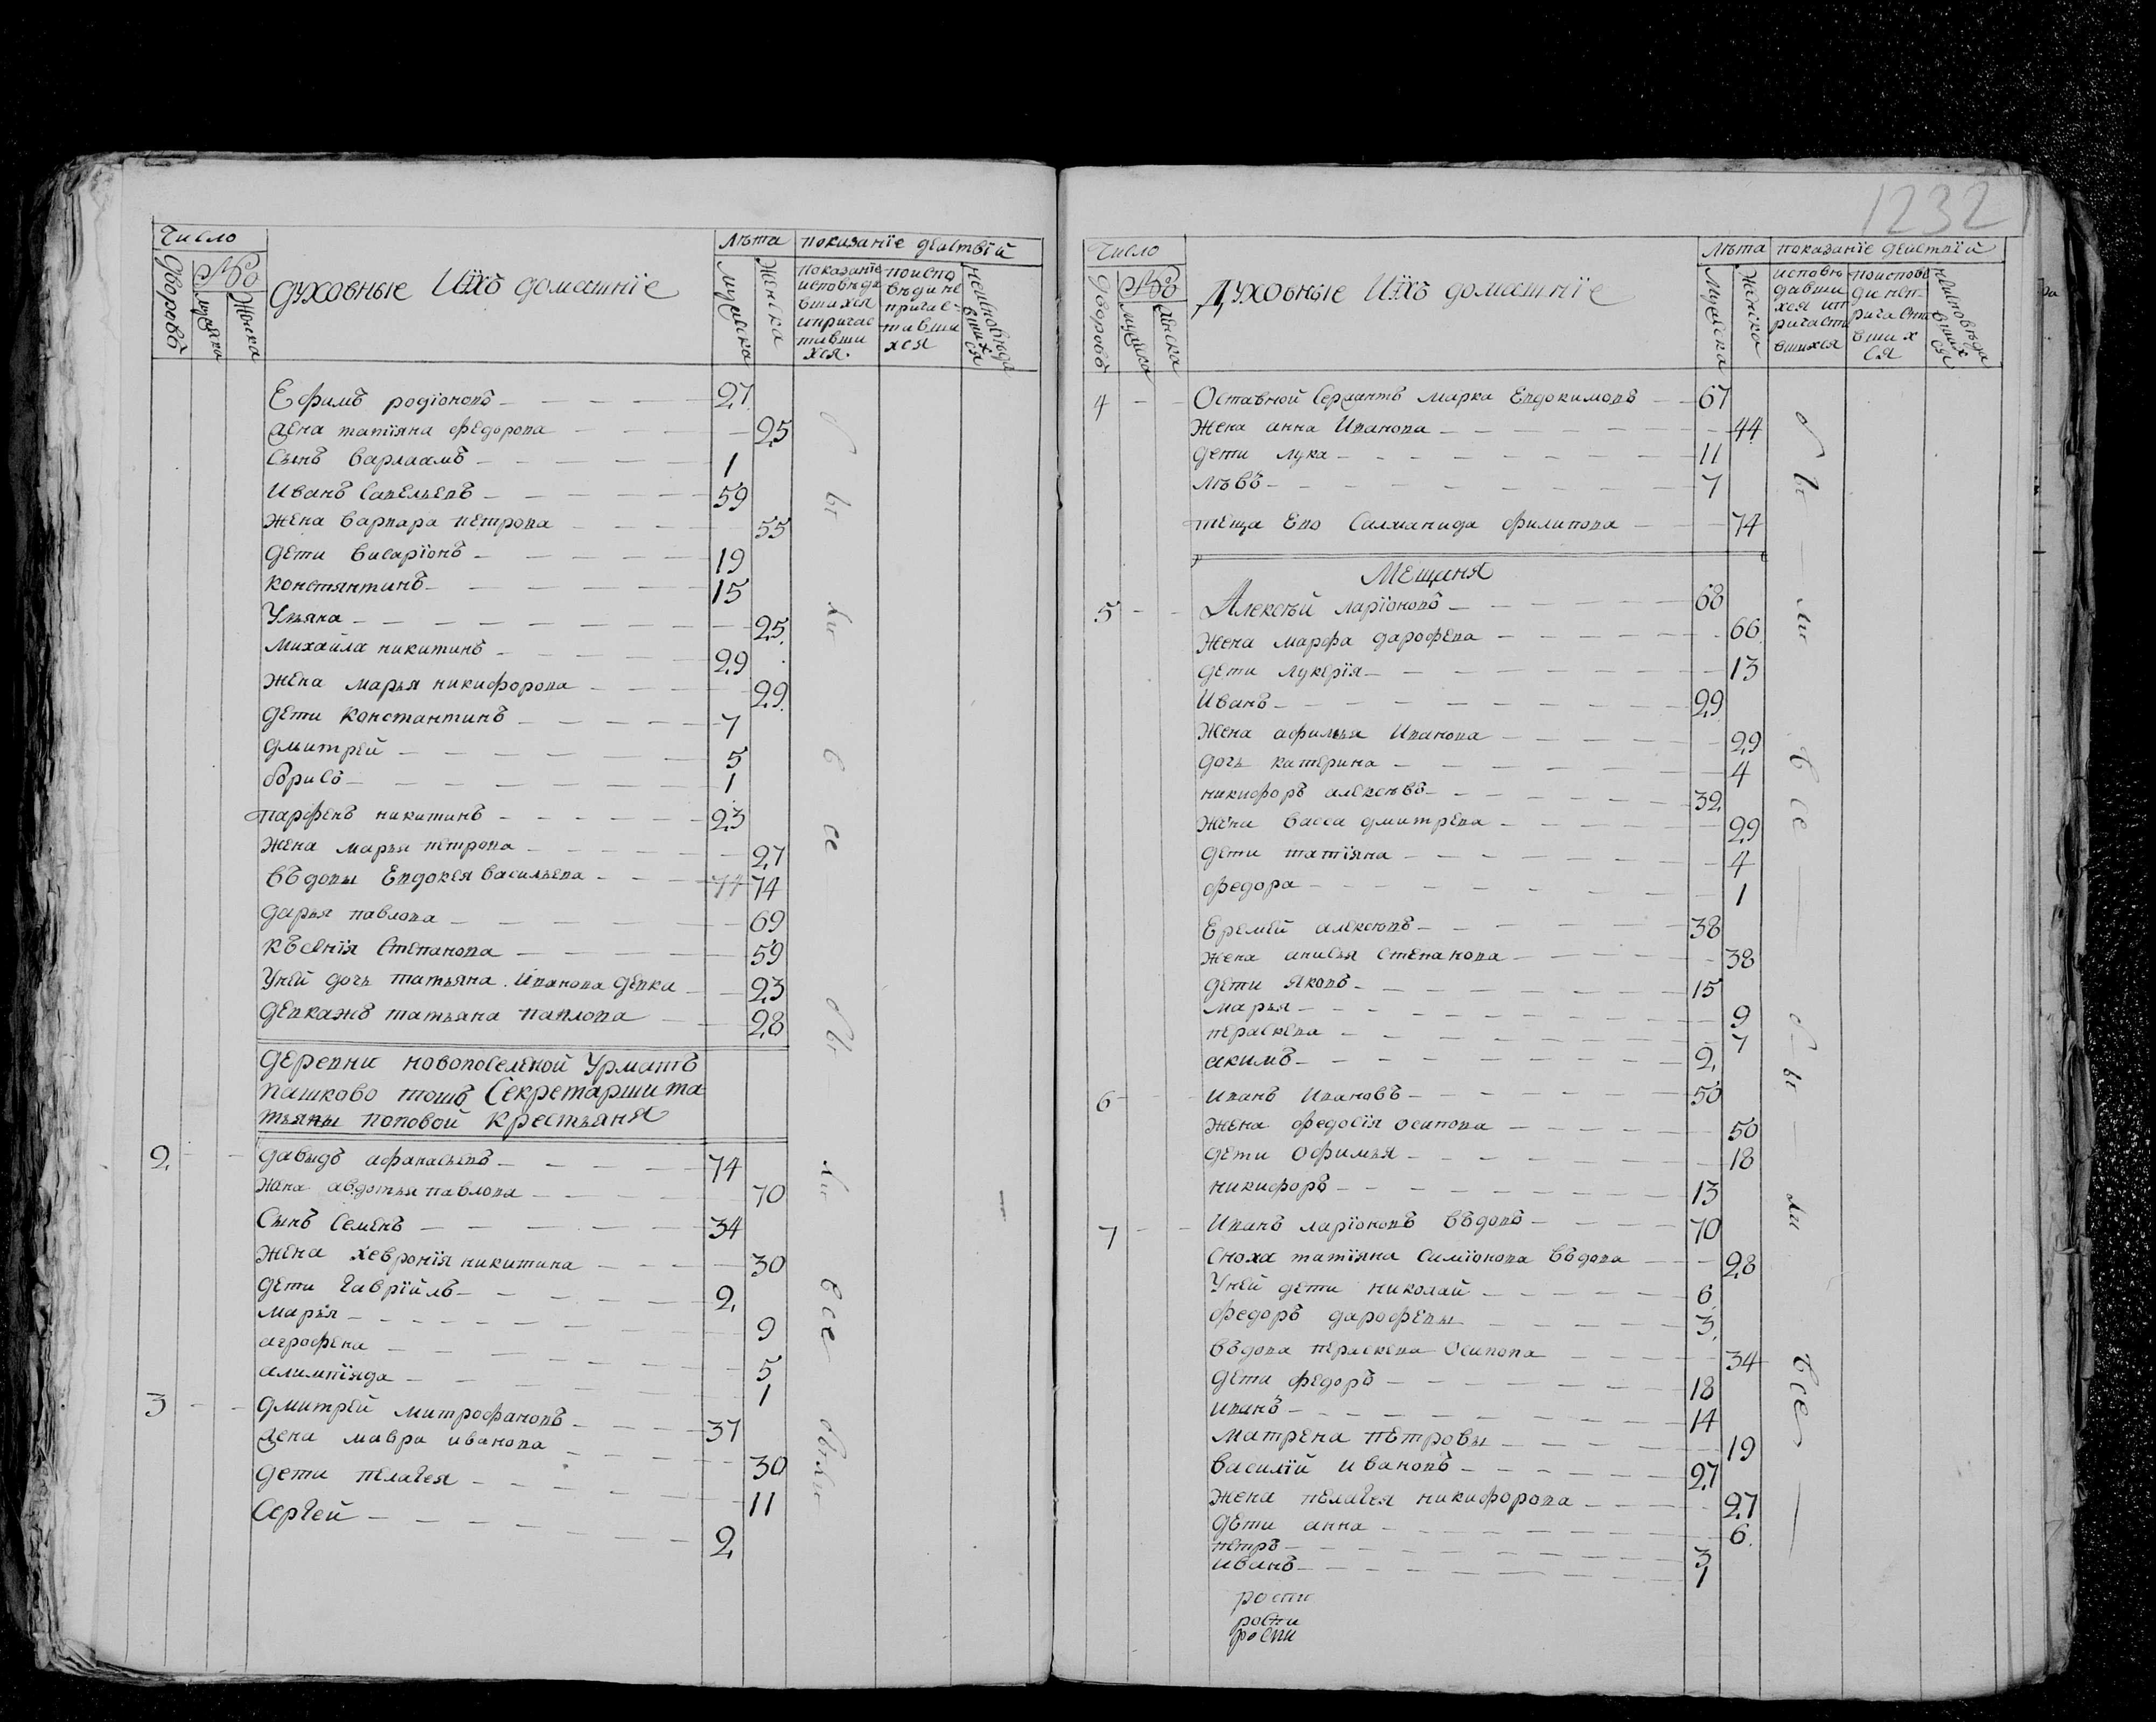 Число
Дворовъ
Мужска
Женска
духовные Ихъ домашніе
Лѣта
Мужска
Женска
показаніе действій
показаніе исповѣдавшихся и причаствшихся.
поиспо вѣди не причаставшихся
неисповѣдавшихся
Ефимъ родіоновъ — 27
Жена татіяна федорова — 25
Сынъ Варлаамъ — 1
Иванъ Савельевъ — 59
жена Варвара петрова — 55
дети Висаріонъ — 19
констянтинъ — 15
Ульяна — 25
Михайла никитинъ — 29
жена марья никифорова — 29
дети константинъ — 7
дмитрей — 5
борисъ — 1
парфенъ никитинъ — 23
жена марья петрова — 27
въдовы Евдокея васильева — 74 74
дарья павлова — 69
къСенія Степанова — 59
Уней дочь татьяна Иванова девки — 23
девкажъ татьяна павлова — 28
деревни новопоселеной Урматъ
пашково тошъ Секретарши та
тьяны поповой крестьяня
2 — давыдъ афанасьевъ — 74
жена авдотья павлова — 70
Сынъ Семенъ — 34
жена хеврония никитина — 30
дети Гавріилъ — 2
марья — 9
агрофена — 5
алимпіяда — 1
3 — дмитрей митрофановъ — 37
жена мавра иванова — 30
дети пелагея — 11
Сергей — 2
бы ли все бы ли все были
1232
Число
Дворовъ
Мужска
Женска
Духовные Ихъ домашніе
Лѣта
Мужска
Женска
показаніе действій
исповѣ давши хся ип ричаст вшихся
поиспове ди неп ричаст вших ся
неисповѣда вших ся
4 — Оставной Сержантъ Марка Евдокимовъ — 67
жена анна Иванова — 44
дети лука — 11
лѣвъ — 7
теща Ево Салманида филипова — 74
Мещаня
5 — Алексей ларіоновъ — 68
жена марфа дарофева — 66
дети лукерія — 13
Иванъ — 29
жена афимья Иванова — 29
дочь катерина — 4
никифоръ алексѣвъ — 32
жена васса дмитрева — 29
дети татіяна — 4
федора — 1
Еремей алексѣвъ — 38
жена анисья Степанова — 38
дети яковъ — 15
марья — 9
праскева — 7
акимъ — 2
6 — иванъ Ивановъ — 50
жена федосія осипова — 50
дети Офимья — 18
никифоръ — 13
7 — Иванъ ларіоновъ въдовъ — 70
Сноха татіяна Симіонова въдова — 28
Уней дети николай — 6
федоръ дарофевы — 3
въдова праскева Осипова — 34
дети федоръ — 18
иванъ — 14
матрена петровы — 19
василій ивановъ — 27
жена пелагея никифорова — 27
дети анна — 6
петръ — 3
иванъ — 1
бы — ли — все — бы — ли все —